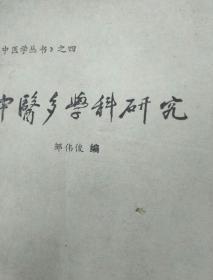 中医学丛书》之四
中醫多學科研究
邹伟俊 编